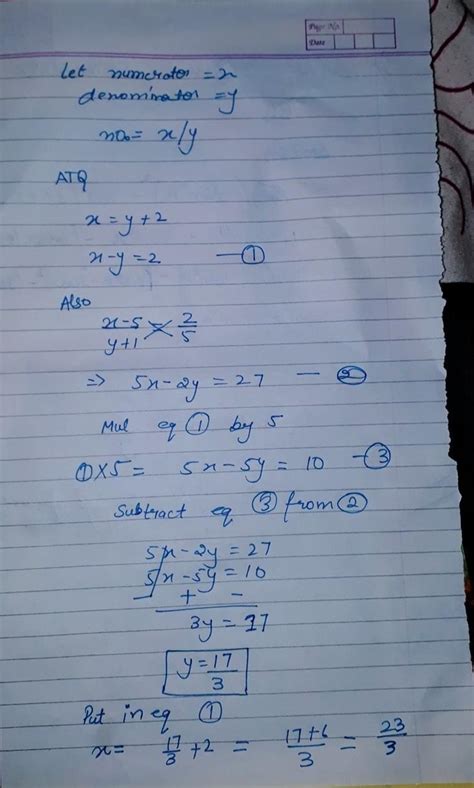 Page No.
Date
Let numerator = x
denominator = y
no. = x/y
ATQ
x = y + 2
x - y = 2 — ①
Also
x-5/y+1 = 2/5
=> 5x - 2y = 27 — ②
Mul eq ① by 5
① X 5 = 5x - 5y = 10 — ③
Subtract eq ③ from ②
5x - 2y = 27
5x - 5y = 10
- + -
3y = 17
y = 17/3
Put in eq ①
x = 17/3 + 2 = 17+6/3 = 23/3